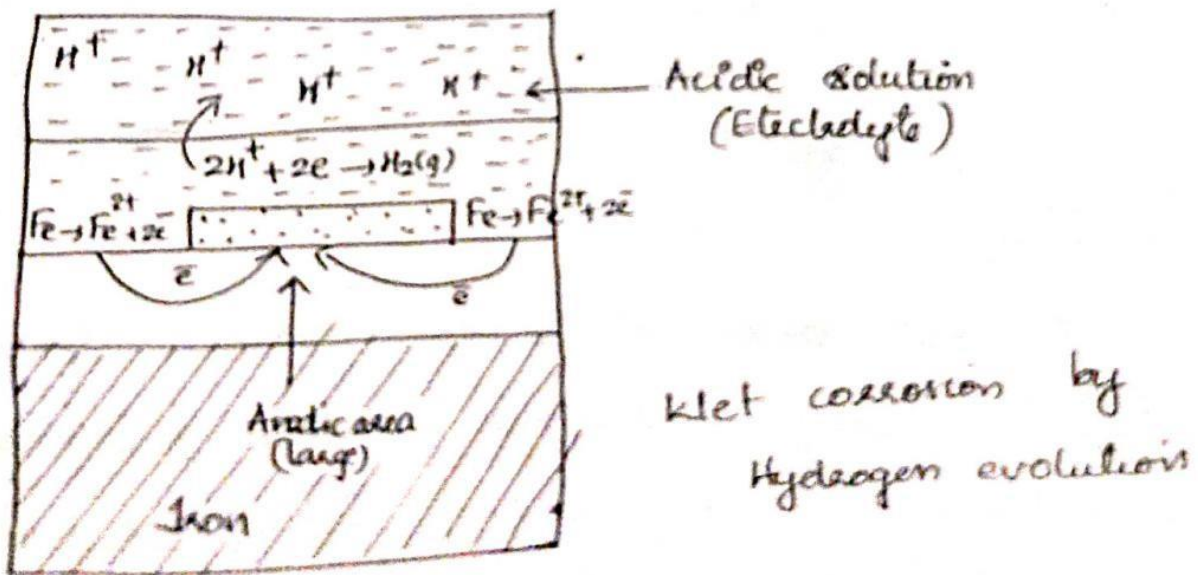 H+ H+ H+ H+
Acidic solution
(Etecladyte)
2H+ + 2e → H2(g)
Fe → Fe2+ + 2e-
Fe → Fe2+ + 2e-
e-
e-
Anodic area
(large)
Iron
Wet corrosion by
Hydrogen evolution